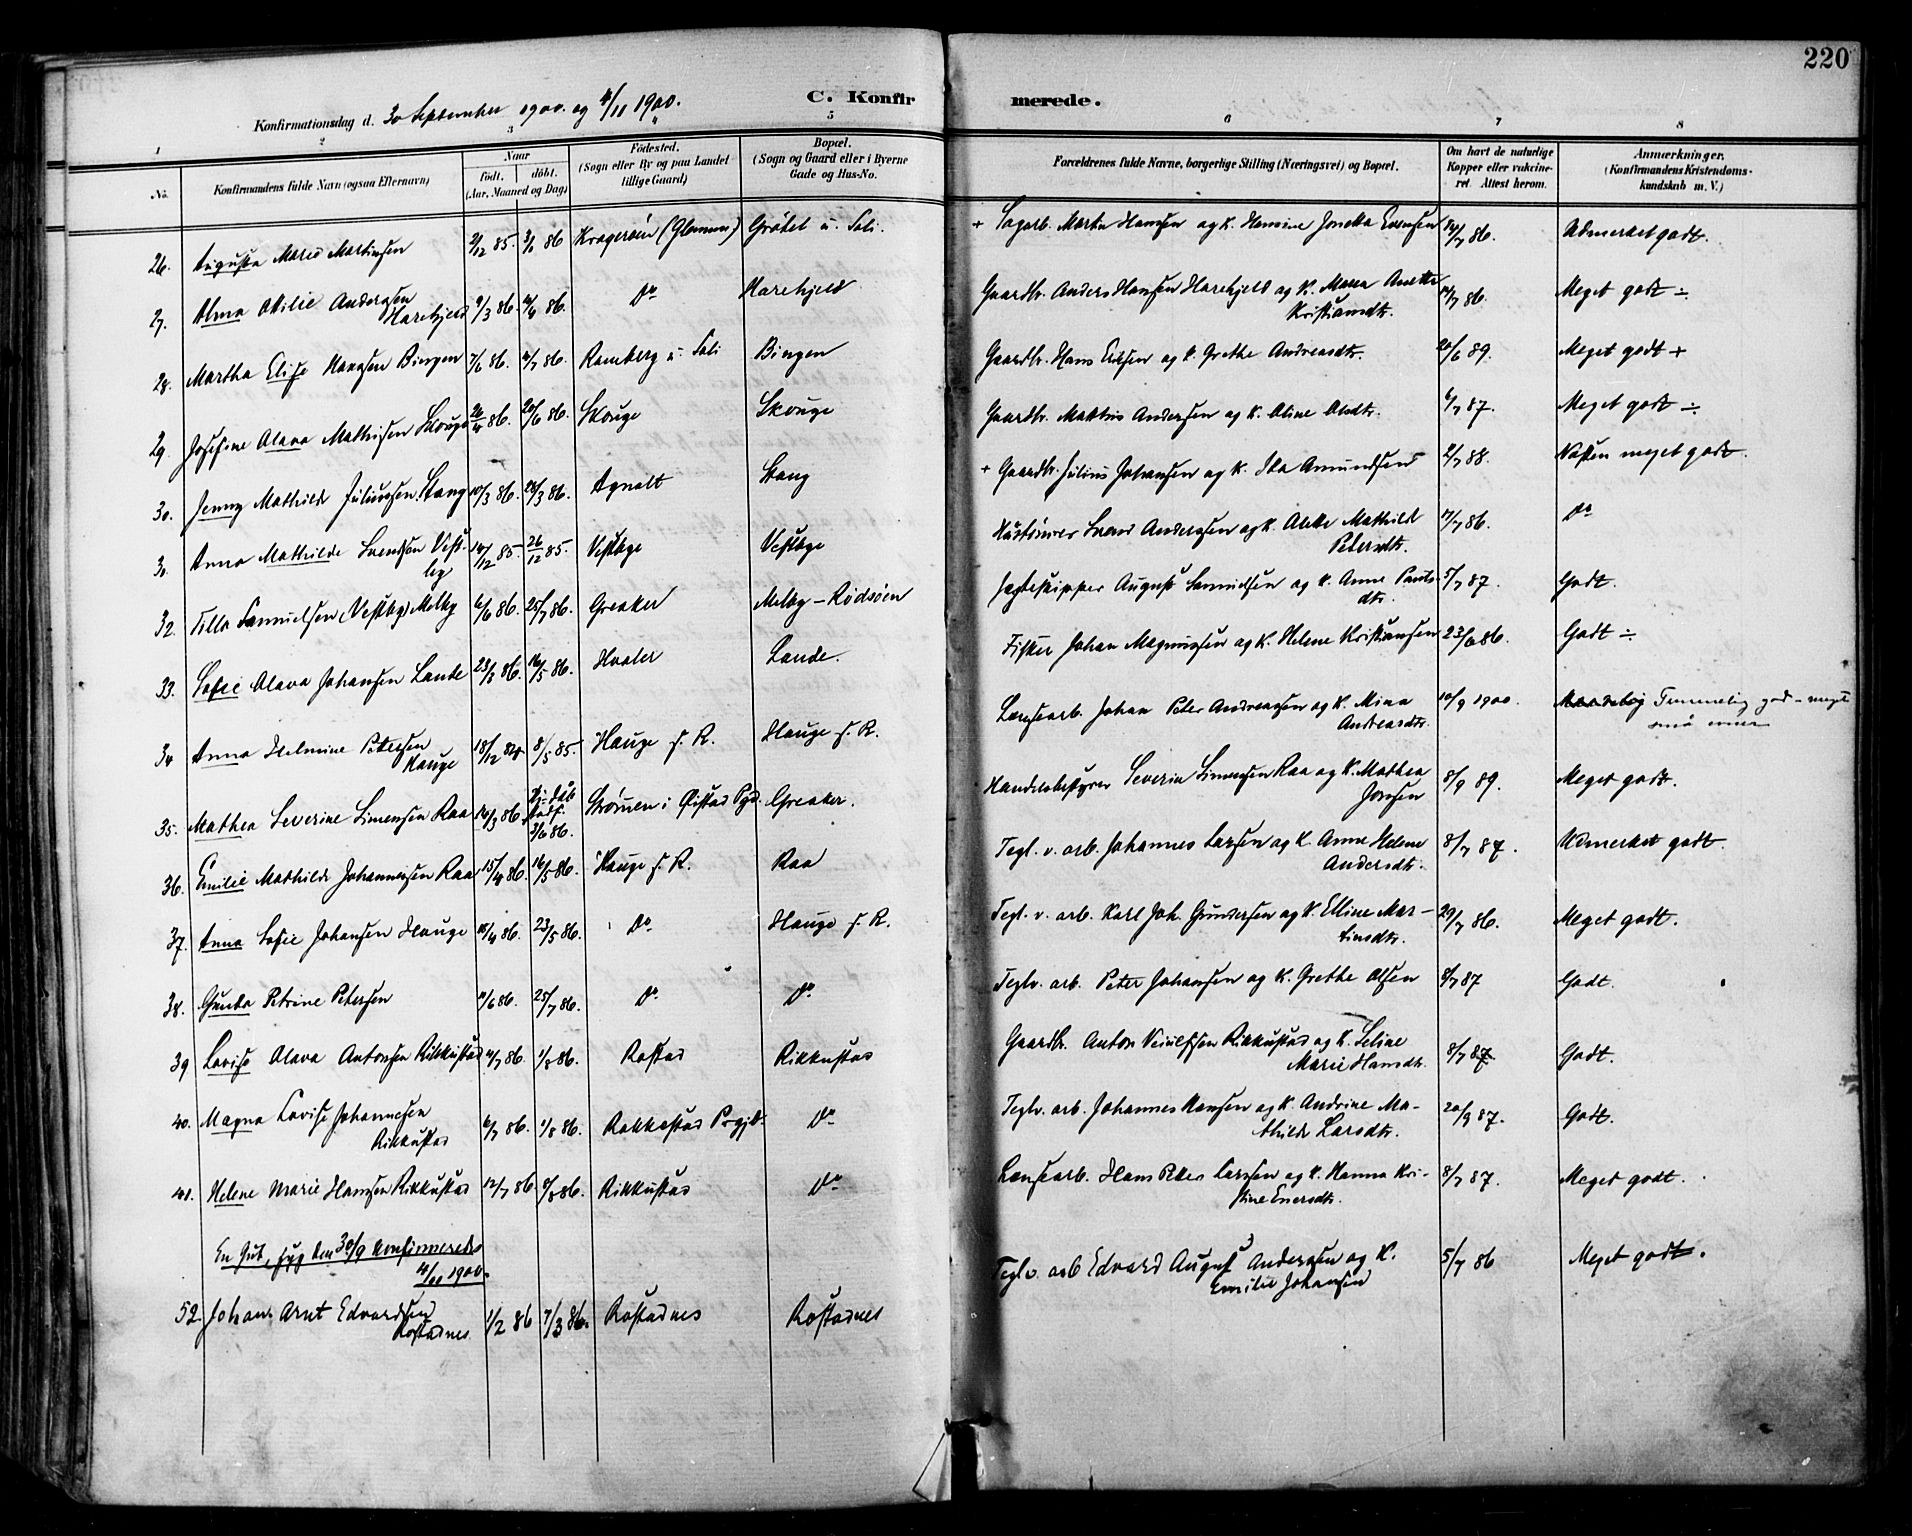 220
Konfirmationsdag d. 30 September 1900 og 4/11 1900.
C. Konfir
merede.
1 2 3 5 6 7 8
No.
Konfirmandens fulde Navn (ogsaa Efternavn)
Naar
født. døbt.
(Aar, Maaned og Dag)
Fødested.
(Sogn eller By og paa Landet
tillige Gaard)
Bopæl.
(Sogn og Gaard eller i Byerne
Gade og Hus-No.
Forældrenes fulde Navne, borgerlige Stilling (Næringsvei) og Bopæl.
Om havt de naturlige
Kopper eller vaksine-
ret. Attest herom.
Anmærkninger.
(Konfirmandens Kristendoms-
kundskab m. V.)
26. Augusta Marie Martinsen 2/12 85. 3/1 86 Kragerøen (Glemmen) Grøtet u. Soli. + Sagarb. Martin Hansen og K. Hansine Jonetta Evensen 14/7 86. Udmerket godt.
27. Alma Otilie Andersen
Harehjeld 9/3 86. 4/4 86. do Harehjeld Gaardbr. Anders Hansen Harehjeld og K. Maren Anette
Kristiansdtr. 14/7 86. Meget godt ÷
28. Martha Elise Hansen Bingen 7/6 86. 4/7 86. Ramberg u. Soli Bingen Gaardbr. Hans Eriksen og K. Grethe Andreasdtr. 20/6 89. Meget godt +
29. Josefine Olava Mathisen Skouge 86. 20/6 86. Skouge Skouge Gaardbr. Mathis Andersen og K. Oline Olsdtr. 6/7 87. Meget godt ÷
30. Jenny Mathilde Juliussen Stang 10/3 86. 28/3 86. Agnalt Stang + Gaardbr. Julius Johansen og K. Ida Amundsen 2/7 88. Næsten meget godt.
31. Anna Mathilde Svendsen Vest-
by 14/12 85. 26/12 85. Vestbye Vestbye Svend Andersen og K. Alette Mathilde
Petersdtr. 17/7 86. do
32. Tilla Samuelsen (Vestby) Melby 6/6 86. 25/7 86. Greaker Melby - Rødsøen Jagteskipper August Samuelsen og K. Anne Pauls-
dtr. 5/7 87. Godt.
33. Sofie Olava Johansen Lande 23/3 86. 16/5 86. Hvaler Lande. Fisker Johan Magnussen og K. Helene Kristiansen 23/6 86. Godt ÷
34. Anna Helmine Petersen
Hauge 18/12 84 8/5 85. Hauge f. R. Hauge f. R. Lænsearb. Johan Peter Andreassen og K. Mina
Andreasdtr. 10/9 1900. Temmelig god - meget
små evner
35. Mathea Severine Simensen Raa 14/3 86. 3/6 86. Strømmen i Øistad Pgd. Greaker. Handelsbestyrer Severin Simensen Raa og K. Mathea
Jonsen 8/9 89. Meget godt.
36. Emilie Mathilde Johannessen Raa 15/4 86. 16/5 86. Hauge f. R. Raa Tegl. v. arb. Johannes Larsen og K. Anne Helene
Andersdtr. 8/7 87. Udmerket godt
37. Anna Sofie Johansen Hauge 18/4 86. 23/5 86. do Hauge f. R. Tegl. v. arb. Karl Joh. Gundersen og K. Elline Mar-
tinsdtr. 29/7 86. Meget godt.
38. Gunda Petrine Petersen 11/6 86. 25/7 86. do do Teglv. arb. Peter Johansen og K. Grethe Olsen 8/7 87 Godt.
39 Lovise Olava Antonsen Rikkustad 4/7 86. 1/8 86. Rostad Rikkustad Gaardbr. Anton Rikkustad og K. Seline
Marie Hansdtr. 8/7 87. Godt.
40. Magna Lovise Johannesen
Rikkustad 6/7 86. 1/8 86. Rakkestad Prgjld. do Teglv. arb. Johannes Hansen og K. Andrine Ma-
thilde Larsdtr. 20/9 87. Godt.
41. Helene Marie Hansen Rikkustad 12/7 86. /8 86. Rikkustad do Lænsearb. Hans Peder Larssen og K. Hanna Kri-
stine Enersdtr. 8/7 87. Meget godt.
En Gut, syg den 30/9 konfirmeredes
4/11 1900.
52. Johan Arnt Edvardsen
Rostadnes 1/2 86 7/3 86. Rostadnes Rostadnes Teglv. arb Edvard August Andersen og K.
Emilie Johansen 5/7 86 Meget godt.